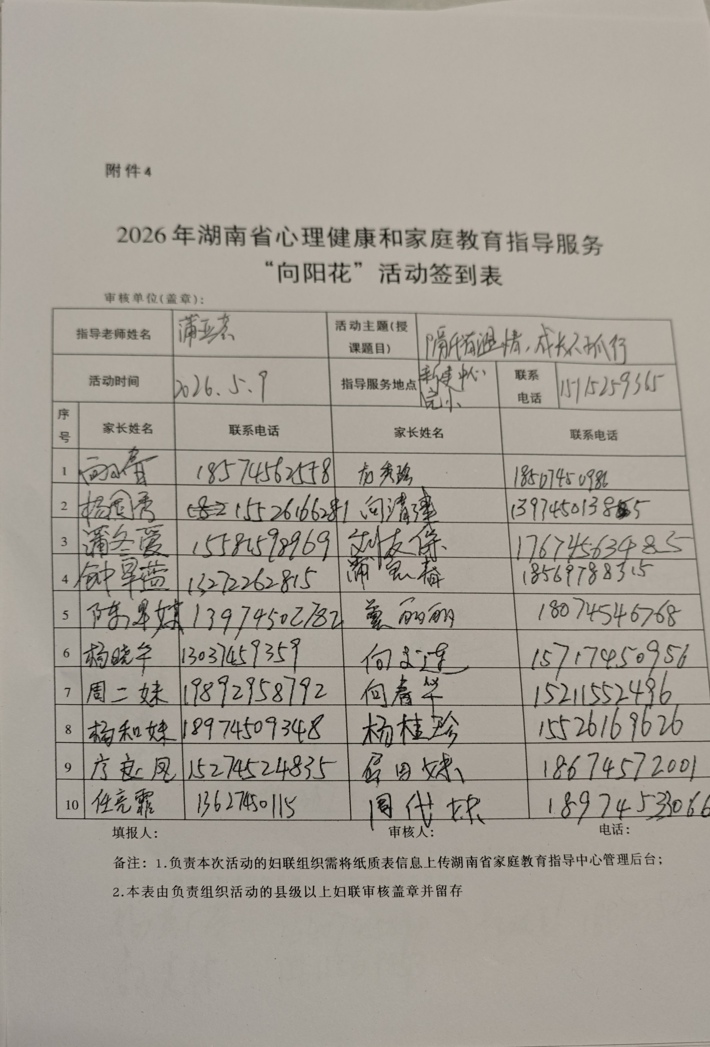 附件4
2026年湖南省心理健康和家庭教育指导服务
“向阳花”活动签到表
审核单位(盖章):
指导老师姓名 蒲亚 活动主题(授课题目) 隔代有温情,成长不孤行
活动时间 2026.5.9 指导服务地点 中心完小 联系电话 15115259365
序号 家长姓名 联系电话 家长姓名 联系电话
1 18574562558 18507450986
2 杨国秀 15526166281 向清 
3 蒲冬爱 15581598969 刘友 17674563485
4 钟早莲 13272262815 蒲 春 18569788315
5 陈 妹 13974502782 丽丽 18074546768
6 杨晓午 13037459359 向 莲 15717450956
7 周二妹 19892958792 向春华 15211552496
8 杨和妹 18974509348 杨桂珍 15526169626
9 凤 15274524835 田妹 18674572001
10 任亮霜 13627450115 周代妹 18974533066
填报人: 审核人: 电话:
备注:1.负责本次活动的妇联组织需将纸质表信息上传湖南省家庭教育指导中心管理后台;
2.本表由负责组织活动的县级以上妇联审核盖章并留存